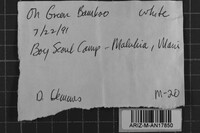 On Green Bamboo white
7/22/91
Boy Scout Camp - Maluhia, Maui
D. Clemons
M-20
ARIZ-M-AN17850